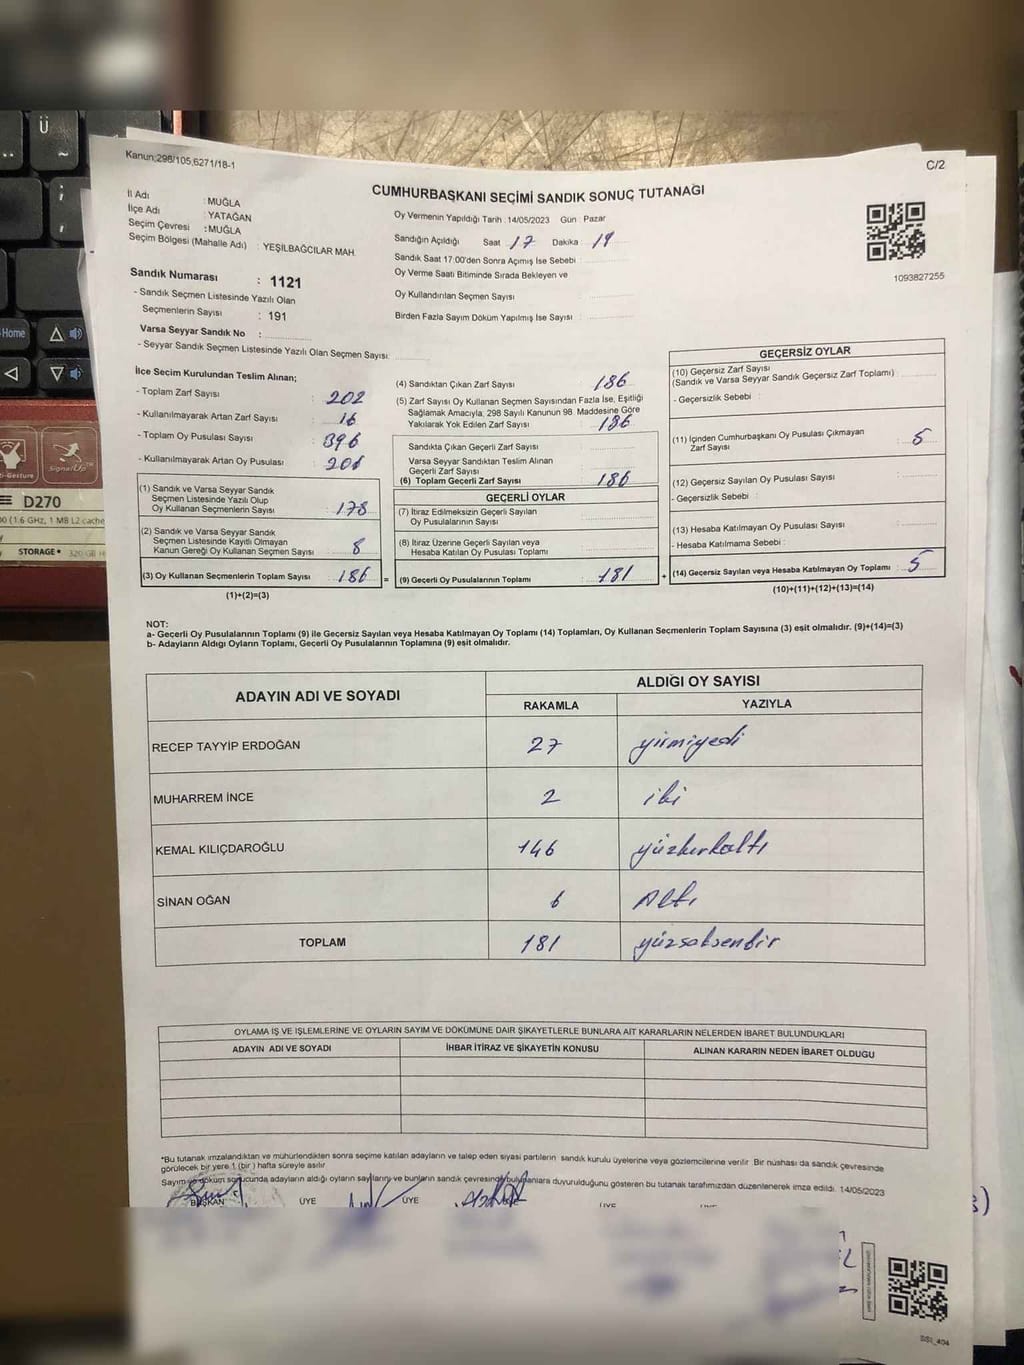 Kanun:298/105,6271/18-1
C/2
CUMHURBAŞKANI SEÇİMİ SANDIK SONUÇ TUTANAĞI
İl Adı : MUĞLA
İlçe Adı : YATAĞAN
Seçim Çevresi : MUĞLA
Seçim Bölgesi (Mahalle Adı) : YEŞİLBAĞCILAR MAH.
Sandık Numarası : 1121
- Sandık Seçmen Listesinde Yazılı Olan
Seçmenlerin Sayısı : 191
Varsa Seyyar Sandık No :
- Seyyar Sandık Seçmen Listesinde Yazılı Olan Seçmen Sayısı:
Oy Vermenin Yapıldığı Tarih : 14/05/2023 Gün : Pazar
Sandığın Açıldığı Saat : 17 Dakika : 19
Sandık Saat 17:00'den Sonra Açımış İse Sebebi :
Oy Verme Saati Bitiminde Sırada Bekleyen ve
Oy Kullandırılan Seçmen Sayısı :
Birden Fazla Sayım Döküm Yapılmış İse Sayısı :
1093827255
İlçe Seçim Kurulundan Teslim Alınan;
- Toplam Zarf Sayısı : 202
- Kullanılmayarak Artan Zarf Sayısı : 16
- Toplam Oy Pusulası Sayısı : 396
- Kullanılmayarak Artan Oy Pusulası :
(1) Sandık ve Varsa Seyyar Sandık
Seçmen Listesinde Yazılı Olup
Oy Kullanan Seçmenlerin Sayısı : 178
(2) Sandık ve Varsa Seyyar Sandık
Seçmen Listesinde Kayıtlı Olmayan
Kanun Gereği Oy Kullanan Seçmen Sayısı : 8
(3) Oy Kullanan Seçmenlerin Toplam Sayısı : 186 =
(1)+(2)=(3)
(4) Sandıktan Çıkan Zarf Sayısı : 186
(5) Zarf Sayısı Oy Kullanan Seçmen Sayısından Fazla İse, Eşitliği
Sağlamak Amacıyla, 298 Sayılı Kanunun 98. Maddesine Göre
Yakılarak Yok Edilen Zarf Sayısı : 186
Sandıkta Çıkan Geçerli Zarf Sayısı :
Varsa Seyyar Sandıktan Teslim Alınan
Geçerli Zarf Sayısı :
(6) Toplam Geçerli Zarf Sayısı : 186
GEÇERLİ OYLAR
(7) İtiraz Edilmeksizin Geçerli Sayılan
Oy Pusulalarının Sayısı :
(8) İtiraz Üzerine Geçerli Sayılan veya
Hesaba Katılan Oy Pusulası Toplamı :
(9) Geçerli Oy Pusulalarının Toplamı : 181 +
GEÇERSİZ OYLAR
(10) Geçersiz Zarf Sayısı
(Sandık ve Varsa Seyyar Sandık Geçersiz Zarf Toplamı) :
- Geçersizlik Sebebi :
(11) İçinden Cumhurbaşkanı Oy Pusulası Çıkmayan
Zarf Sayısı : 5
(12) Geçersiz Sayılan Oy Pusulası Sayısı :
- Geçersizlik Sebebi :
(13) Hesaba Katılmayan Oy Pusulası Sayısı :
- Hesaba Katılmama Sebebi :
(14) Geçersiz Sayılan veya Hesaba Katılmayan Oy Toplamı : 5
(10)+(11)+(12)+(13)=(14)
NOT:
a- Geçerli Oy Pusulalarının Toplamı (9) ile Geçersiz Sayılan veya Hesaba Katılmayan Oy Toplamı (14) Toplamları, Oy Kullanan Seçmenlerin Toplam Sayısına (3) eşit olmalıdır. (9)+(14)=(3)
b- Adayların Aldığı Oyların Toplamı, Geçerli Oy Pusulalarının Toplamına (9) eşit olmalıdır.
ADAYIN ADI VE SOYADI ALDIĞI OY SAYISI
RAKAMLA YAZIYLA
RECEP TAYYİP ERDOĞAN 27 yirmiyedi
MUHARREM İNCE 2 iki
KEMAL KILIÇDAROĞLU 146 yüzkırkaltı
SİNAN OĞAN 6 Altı
TOPLAM 181 yüzseksenbir
OYLAMA İŞ VE İŞLEMLERİNE VE OYLARIN SAYIM VE DÖKÜMÜNE DAİR ŞİKAYETLERLE BUNLARA AİT KARARLARIN NELERDEN İBARET BULUNDUKLARI
ADAYIN ADI VE SOYADI İHBAR İTİRAZ VE ŞİKAYETİN KONUSU ALINAN KARARIN NEDEN İBARET OLDUĞU
*Bu tutanak imzalandıktan ve mühürlendikten sonra seçime katılan adayların ve talep eden siyasi partilerin sandık kurulu üyelerine veya gözlemcilerine verilir. Bir nüshası da sandık çevresinde
görülecek bir yere 1 (bir ) hafta süreyle asılır
Sayım ve döküm sonucunda adayların aldığı oyların sayılarını ve bunların sandık çevresinde bulunanlara duyurulduğunu gösteren bu tutanak tarafımızdan düzenlenerek imza edildi. 14/05/2023
BAŞKAN ÜYE ÜYE
Home
D270
STORAGE
SignalUp